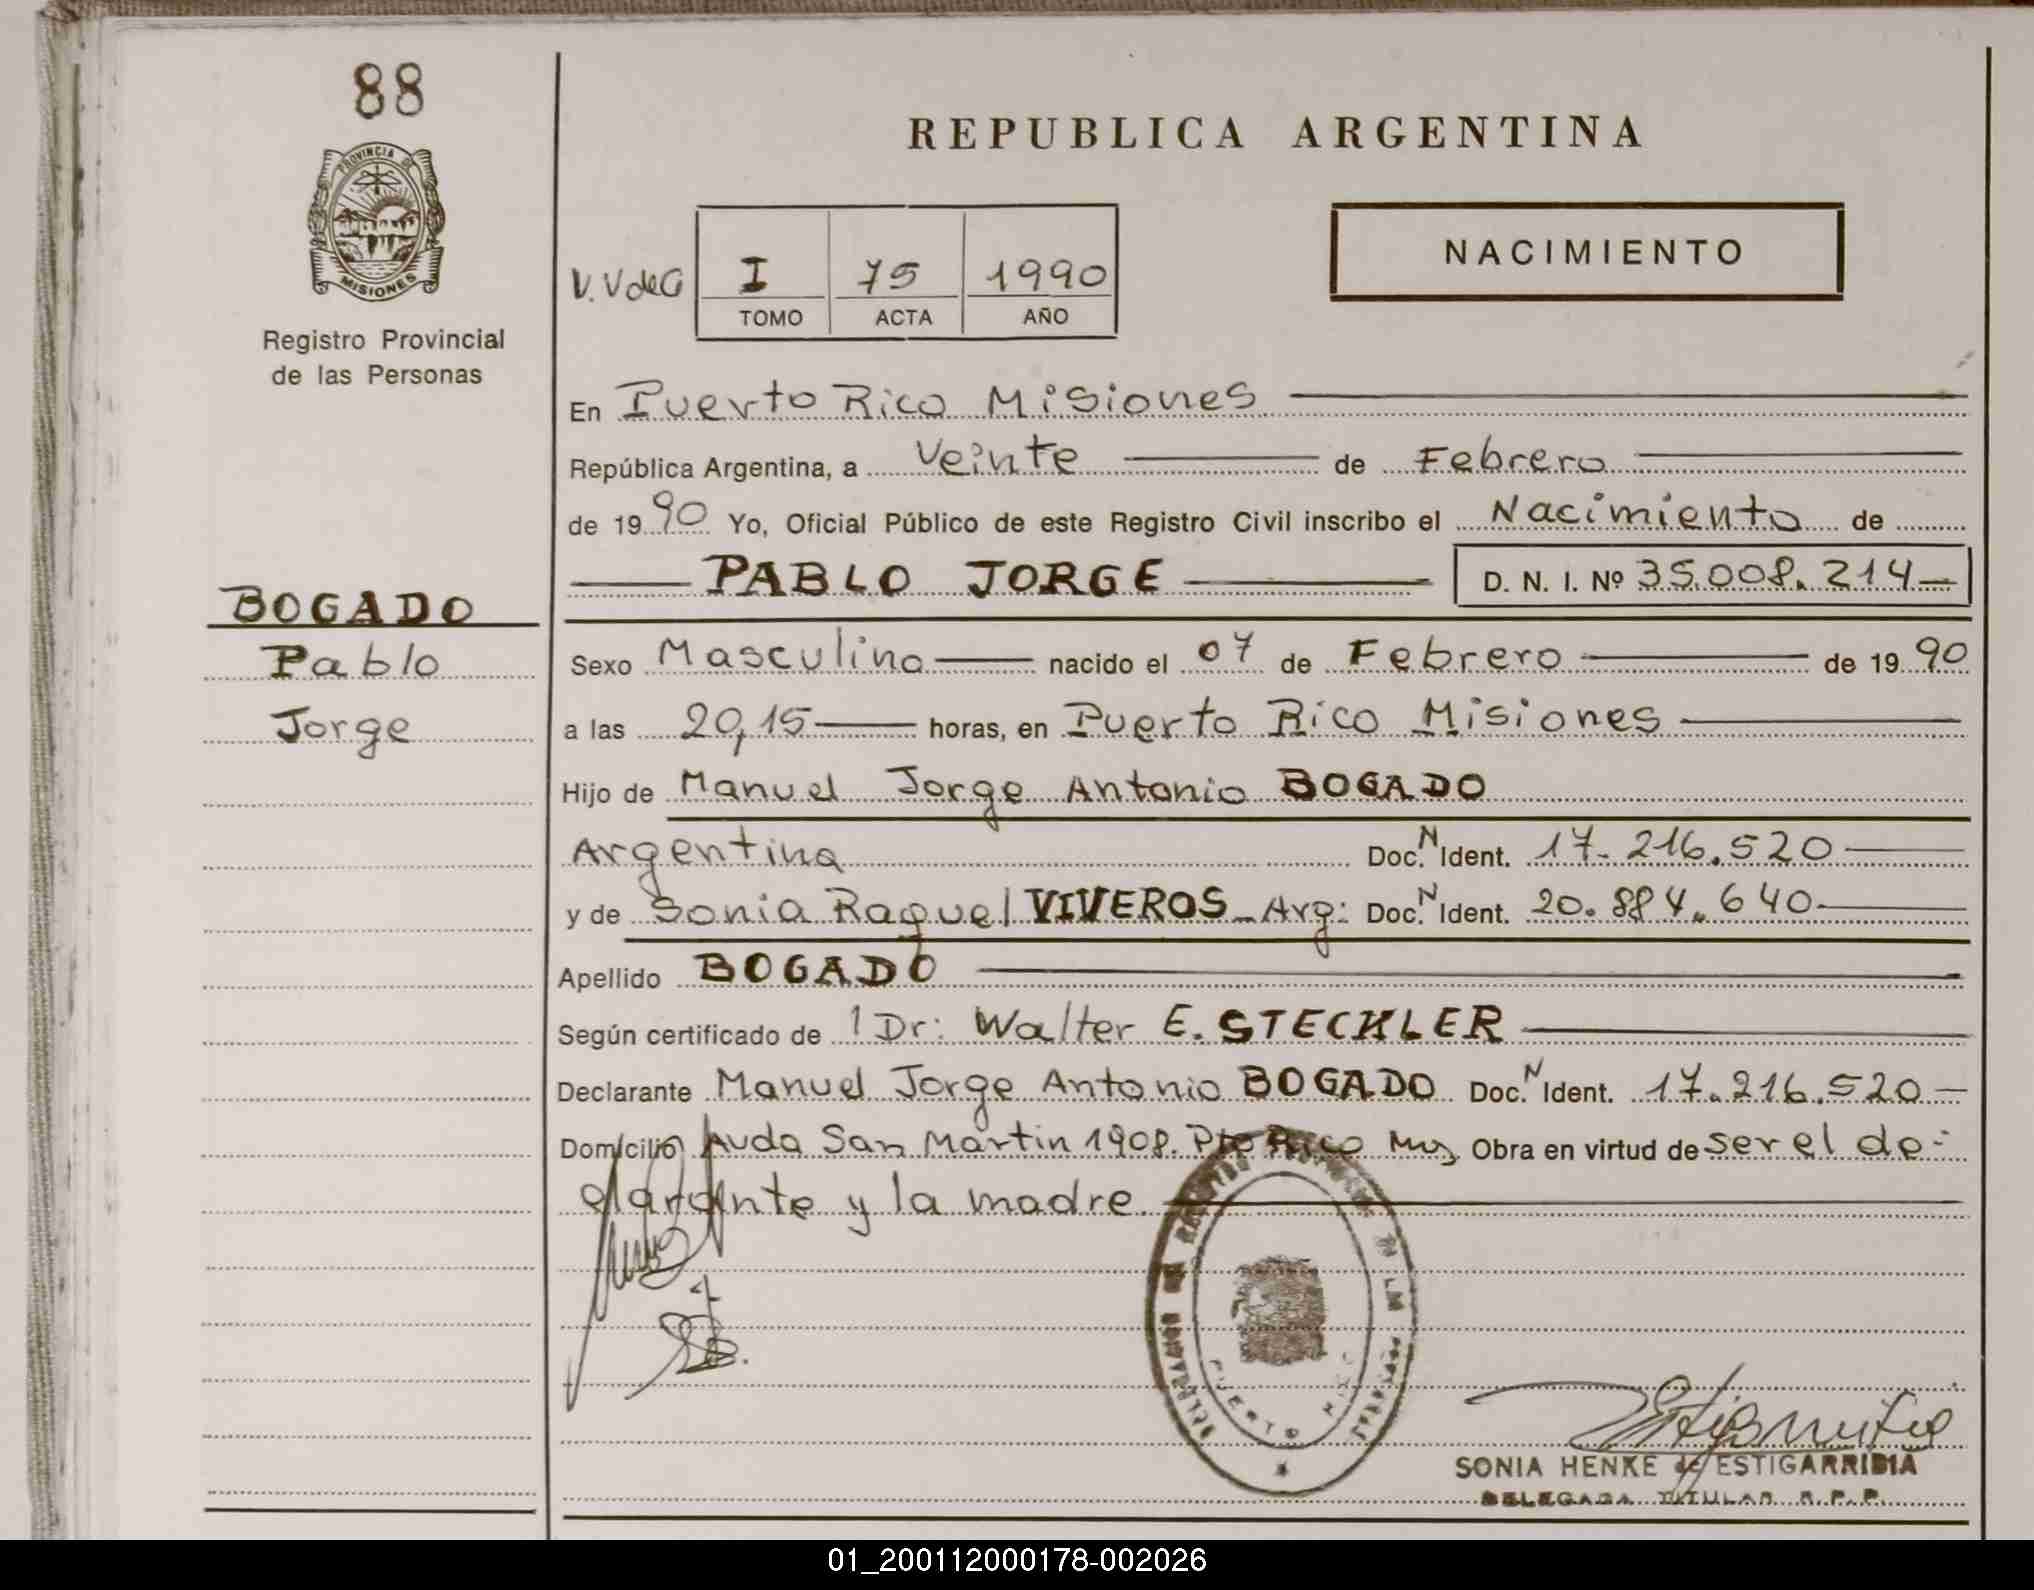 88
PROVINCIA DE
MISIONES
Registro Provincial
de las Personas
BOGADO
Pablo
Jorge
REPUBLICA ARGENTINA
NACIMIENTO
V.VdeG I 75 1990
TOMO ACTA AÑO
En Puerto Rico Misiones
República Argentina, a Veinte de Febrero
de 1990 Yo, Oficial Público de este Registro Civil inscribo el Nacimiento de
PABLO JORGE D. N. I. Nº 35.008.214
Sexo Masculino nacido el 07 de Febrero de 1990
a las 20,15 horas, en Puerto Rico Misiones
Hijo de Manuel Jorge Antonio BOGADO
Argentina Doc. N Ident. 17.216.520
y de Sonia Raquel VIVEROS - Arg: Doc. N Ident. 20.884.640
Apellido BOGADO
Según certificado de l Dr: Walter E. STECKLER
Declarante Manuel Jorge Antonio BOGADO Doc. N Ident. 17.216.520
Domicilio Avda San Martin 1908. Pto Rico Mns Obra en virtud de ser el de-
clarante y la madre.
PUERTO RICO
SONIA HENKE de ESTIGARRIBIA
DELEGADA TITULAR R.P.P.
01_200112000178-002026